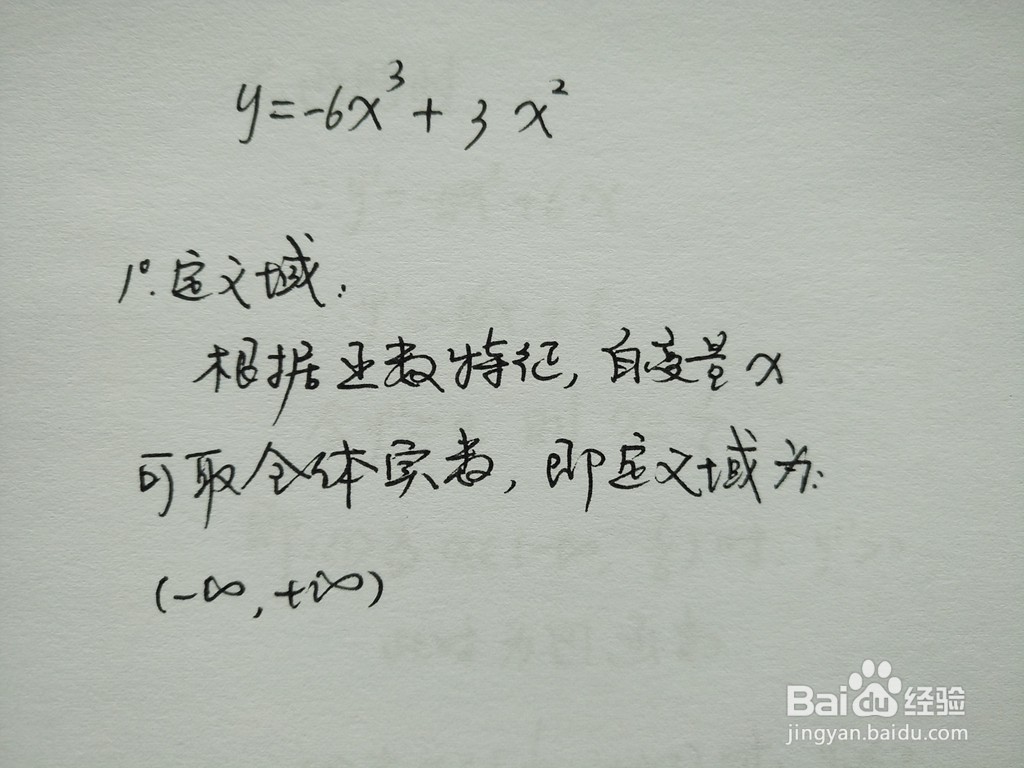 y=-6x³+3x²
1°.定义域:
根据函数特征,自变量x
可取全体实数,即定义域为:
(-∞,+∞)
Baidu经验
jingyan.baidu.com